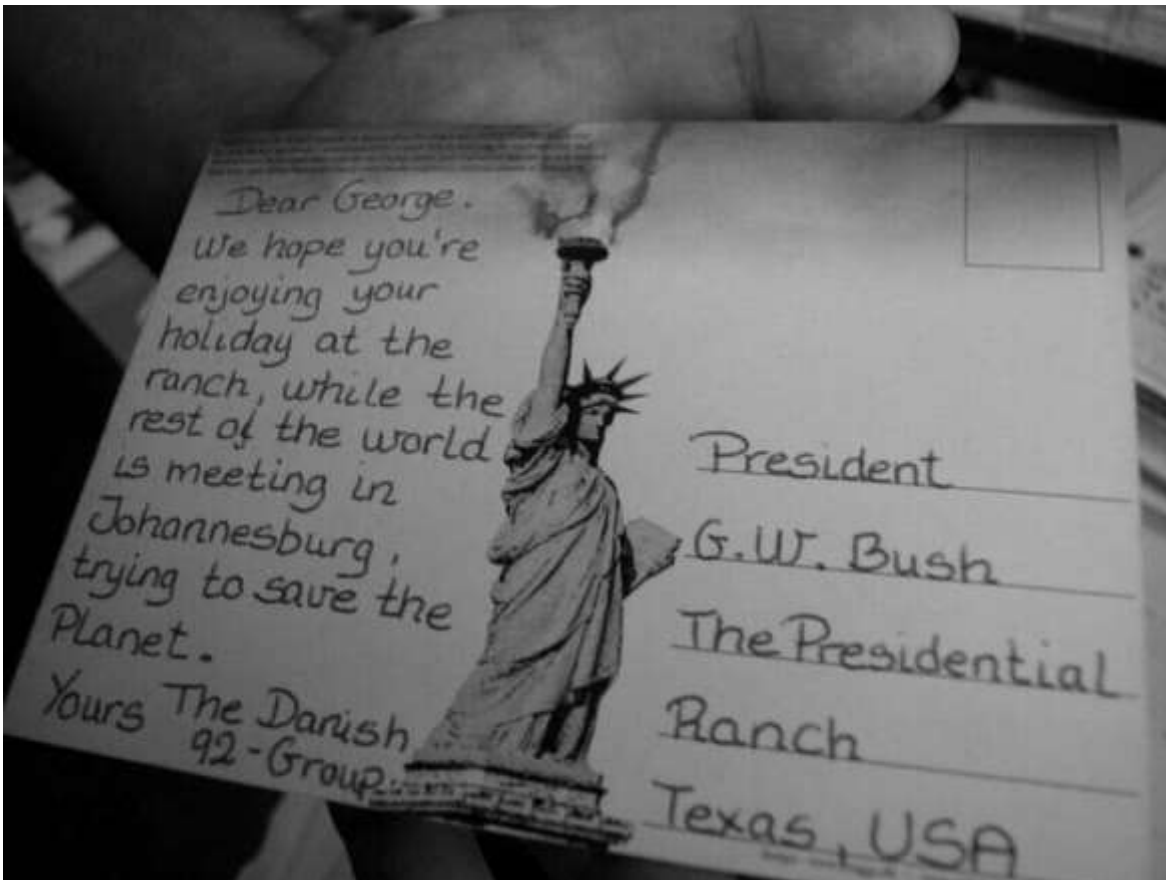 Dear George.
We hope you're
enjoying your
holiday at the
ranch, while the
rest of the world
is meeting in
Johannesburg,
trying to save the
Planet.
Yours The Danish
92-Group
President
G.W. Bush
The Presidential
Ranch
Texas, USA